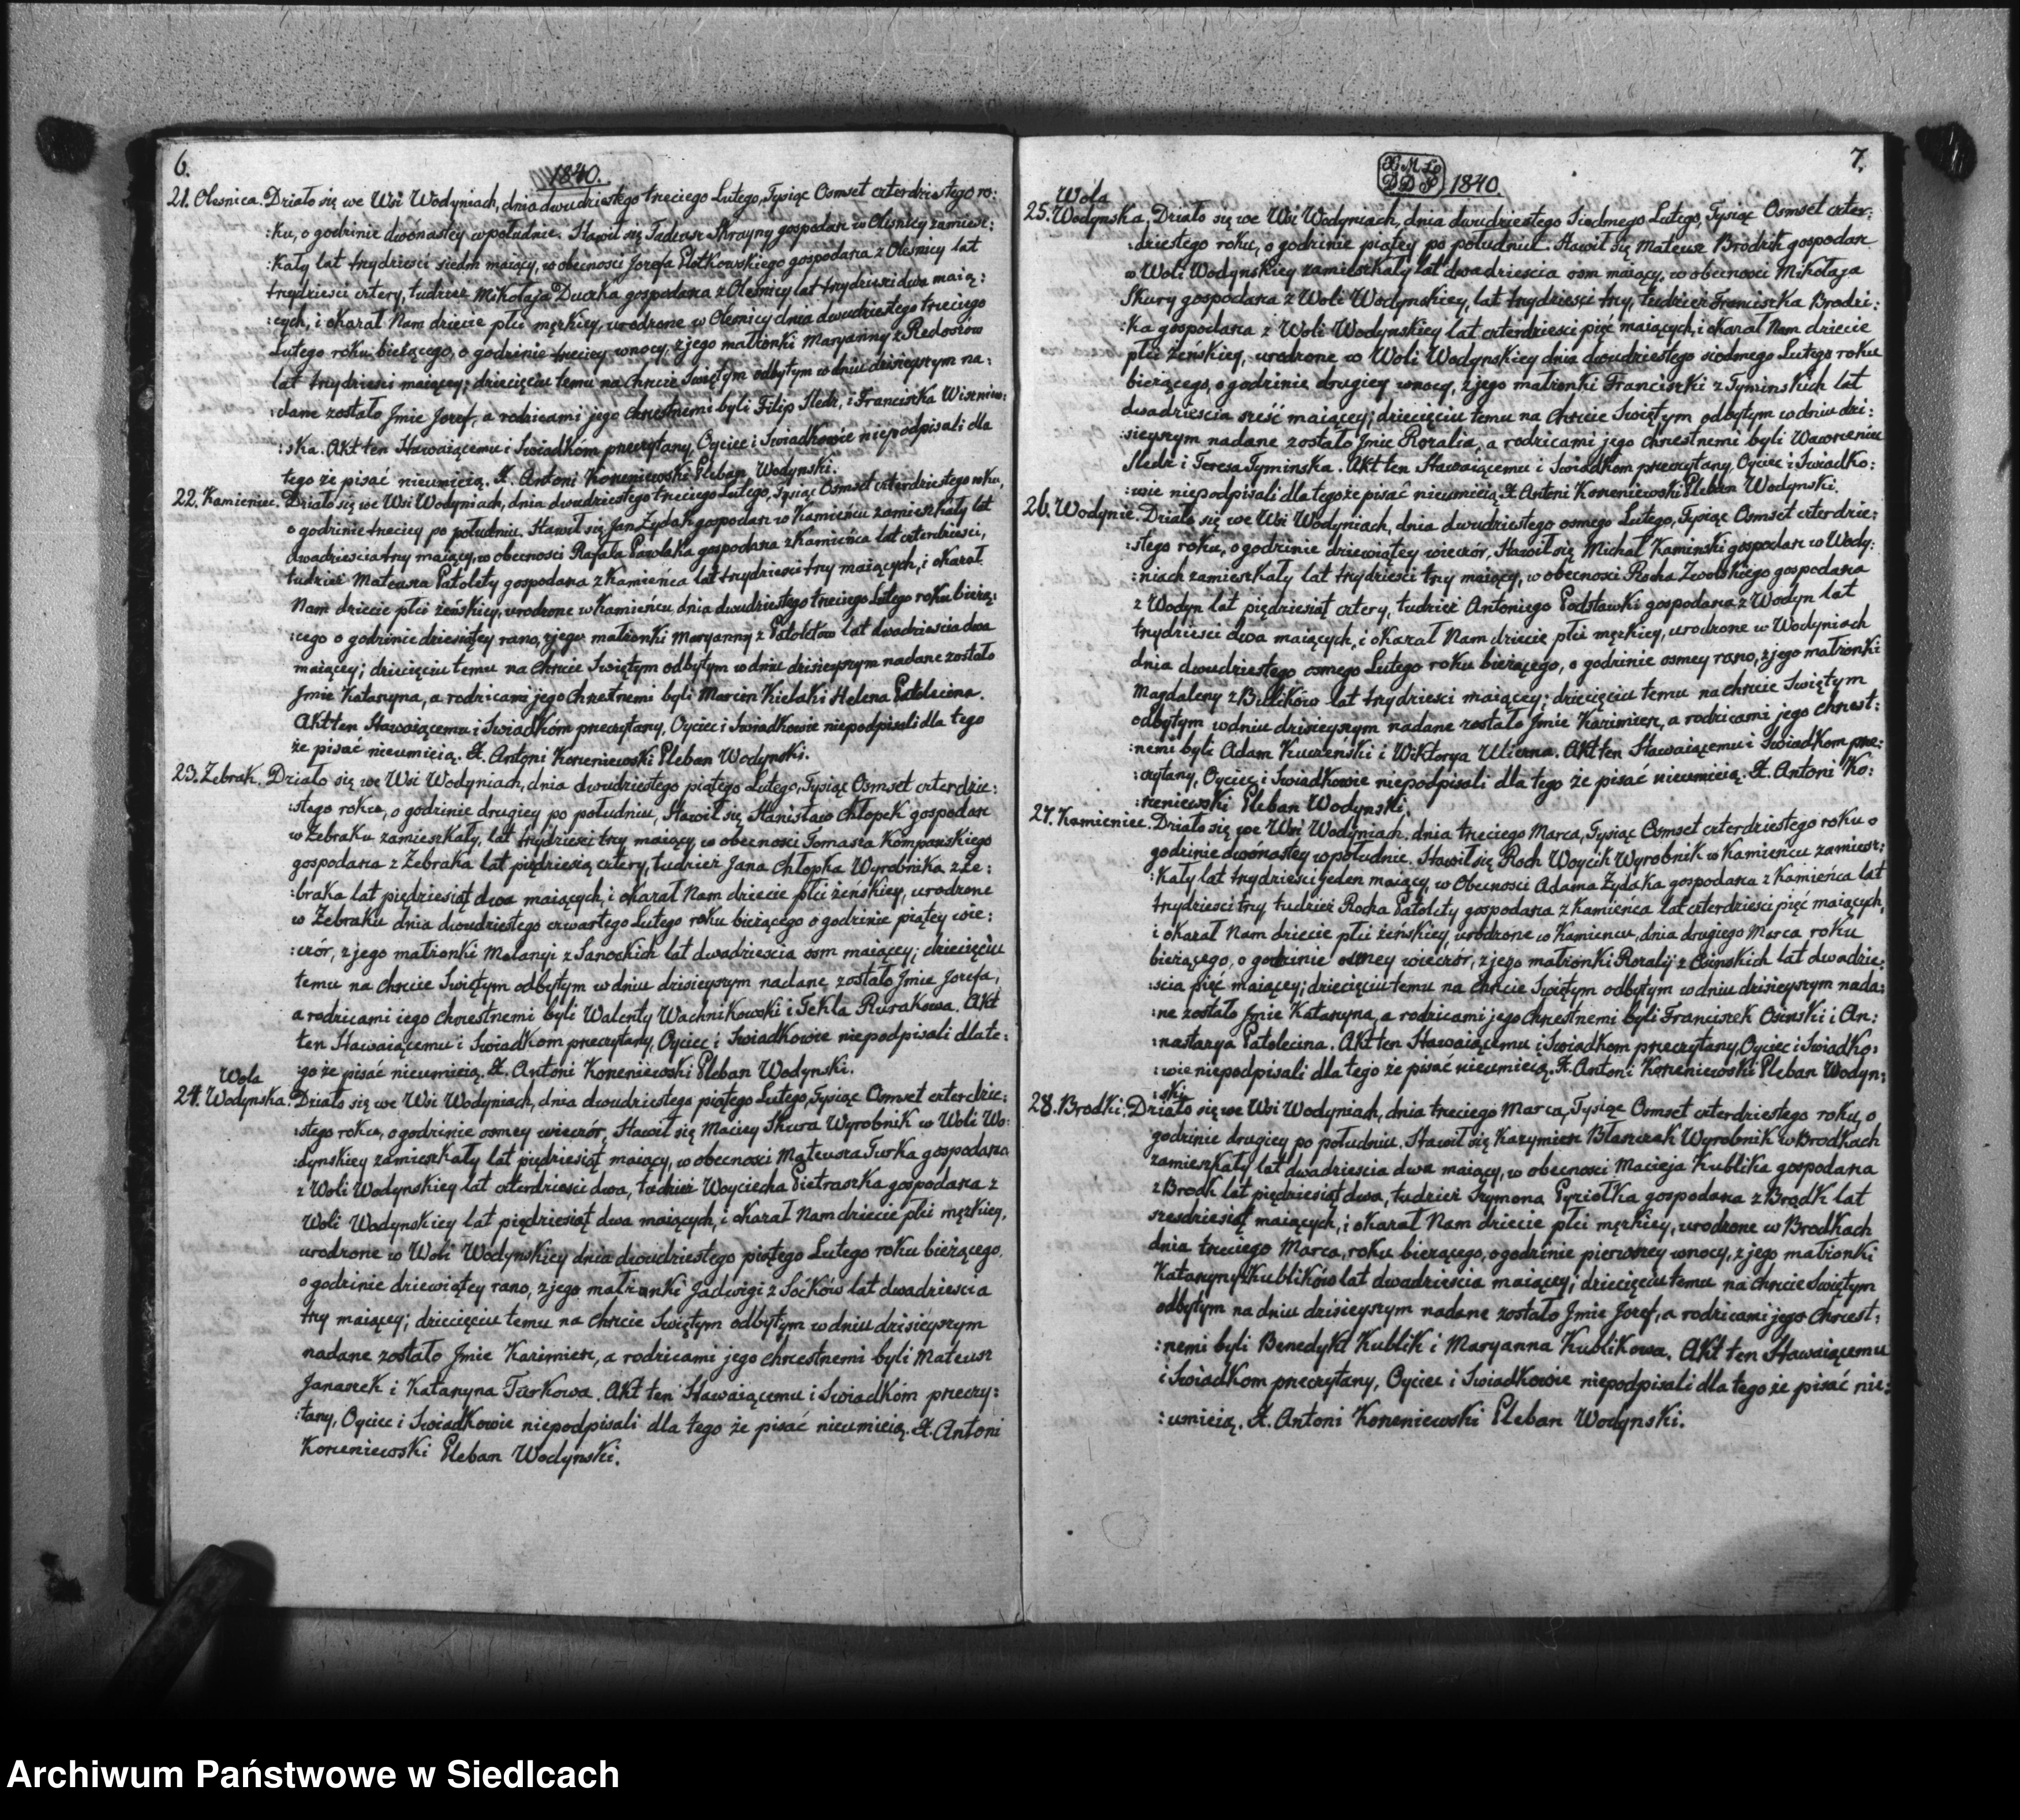 6.
1840.
21. Olesnica. Działo się we Wsi Wodyniach, dnia dwudziestego trzeciego Lutego, Tysiąc Osmset czterdziestego ro:
:ku, o godzinie dwónastey w południe. Stawił się Tadeusz Skrayny gospodarz w Olesnicy zamiesz:
:kały lat trzydziesci siedm maiący, w obecnosci Jozefa Plotkowskiego gospodarza z Olesnicy lat
trzydziesci cztery, tudzież Mikołaja Duczka gospodarza z Olesnicy lat trzydziesci dwa maią:
:cych, i okazał Nam dziecie płci męzkiey, urodzone w Olesnicy dnia dwudziestego trzeciego
Lutego roku bieżącego, o godzinie trzeciey w nocy, z jego małżonki Maryanny z Redosiow
lat trzydziesci maiącey; dziecięciu temu na Chrzcie Swiętym odbytym w dniu dzisieyszym na:
:dane zostało Jmie Jozef, a rodzicami jego chrzestnemi byli Filip Sledz, i Franciszka Wiszniew:
:ska. Akt ten Stawaiącemu i Swiadkóm przeczytany, Oyciec i Swiadkowie niepodpisali dla
tego że pisać nieumieią. X. Antoni Korzeniewski Pleban Wodynski.
22. Kamieniec. Działo się we Wsi Wodyniach, dnia dwudziestego trzeciego Lutego, Tysiąc Osmset czterdziestego roku,
o godzinie trzeciey po południu. Stawił się Jan Zydak gospodarz w Kamieńcu zamieszkały lat
dwadziescia trzy maiący, w obecnosci Rafała Pawlaka gospodarza z Kamieńca lat czterdziesci,
tudzież Mateusza Patolety gospodarza z Kamieńca lat trzydziesci trzy maiących, i okazał
Nam dziecie płci żeńskiey, urodzone w Kamieńcu dnia dwudziestego trzeciego Lutego roku bieżą:
:cego o godzinie dziesiątey rano, z jego małżonki Maryanny z Patoletow lat dwadziescia dwa
maiącey; dziecięciu temu na Chrzcie Swiętym odbytym w dniu dzisieyszym nadane zostało
Jmie Katarzyna, a rodzicami jego Chrzestnemi byli Marcin Kielak i Helena Patolecina.
Akt ten Stawaiącemu i Swiadkóm przeczytany, Oyciec i Swiadkowie niepodpisali dla tego
że pisać nieumieią. X. Antoni Korzeniewski Pleban Wodynski.
23. Żebrak. Działo się we Wsi Wodyniach, dnia dwudziestego piątego Lutego, Tysiąc Osmset czterdzie:
:stego roku, o godzinie drugiey po południu, Stawił się Stanisław Chłopek gospodarz
w Żebraku zamieszkały, lat trzydziesci trzy maiący, w obecnosci Tomasza Komparskiego
gospodarza z Żebraka lat pięćdziesią cztery, tudzież Jana Chłopka Wyrobnika z Że:
:braka lat pięćdziesiąt dwa maiących, i okazał Nam dziecie płci żeńskiey, urodzone
w Żebraku dnia dwudziestego czwartego Lutego roku bieżącego o godzinie piątey wie:
:czór, z jego małżonki Melanyi z Sanockich lat dwadziescia osm maiącey; dziecięciu
temu na chrzcie Swiętym odbytym w dniu dzisieyszym nadane zostało Jmie Jozefa,
a rodzicami iego chrzestnemi byli Walenty Wachnikowski i Tekla Rurakowa. Akt
ten Stawaiącemu i Swiadkom przeczytany, Oyciec i Swiadkowie niepodpisali dla te:
:go że pisać nieumieią. X. Antoni Korzeniewski Pleban Wodynski.
Wola
24. Wodynska. Działo się we Wsi Wodyniach, dnia dwudziestego piątego Lutego, Tysiąc Osmset czterdzie:
:stego roku, o godzinie osmey wieczór, Stawił się Maciey Skura Wyrobnik w Woli Wo:
:dynskiey zamieszkały lat pięćdziesiąt maiący, w obecnosci Mateusza Turka gospodarza
z Woli Wodynskiey lat czterdziesci dwa, tudzież Woyciecha Pietraszka gospodarza z
Woli Wodynskiey lat pięćdziesiąt dwa maiących, i okazał Nam dziecie płci męzkiey,
urodzone w Woli Wodynskiey dnia dwudziestego piątego Lutego roku bieżącego,
o godzinie dziewiątey rano, z jego małżonki Jadwigi z Soćków lat dwadziescia
trzy maiącey; dziecięciu temu na chrzcie Swiętym odbytym w dniu dzisieyszym
nadane zostało Jmie Kazimierz, a rodzicami jego chrzestnemi byli Mateusz
Janaszek i Katarzyna Turkowa. Akt ten Stawaiącemu i Swiadkóm przeczy:
:tany, Oyciec i Swiadkowie niepodpisali dla tego że pisać nieumieią. X. Antoni
Korzeniewski Pleban Wodynski.
7.
X M Ło
D D P
1840.
Wola
25. Wodynska. Działo się we Wsi Wodyniach, dnia dwudziestego Siodmego Lutego, Tysiąc Osmset czter:
:dziestego roku, o godzinie piątey po południu. Stawił się Mateusz Brodzik gospodarz
w Woli Wodynskiey zamieszkały lat dwadziescia osm maiący, w obecnosci Mikołaja
Skury gospodarza z Woli Wodynskiey, lat trzydziesci trzy, tudzież Franciszka Brodzi:
:ka gospodarza z Woli Wodynskiey lat czterdziesci pięć maiących, i okazał Nam dziecie
płci żeńskiey, urodzone w Woli Wodynskiey dnia dwudziestego siodmego Lutego roku
bieżącego, o godzinie drugiey w nocy, z jego małżonki Franciszki z Tyminskich lat
dwadziescia szesć maiącey; dziecięciu temu na Chrzcie Swiętym odbytym w dniu dzi:
:sieyszym nadane zostało Jmie Rozalia, a rodzicami jego chrzestnemi byli Wawrzeniec
Sledz i Teresa Tyminska. Akt ten Stawaiącemu i Swiadkom przeczytany, Oyciec i Swiadko:
:wie niepodpisali dla tego że pisać nieumieią. X. Antoni Korzeniewski Pleban Wodynski.
26. Wodynie. Działo się we Wsi Wodyniach, dnia dwudziestego osmego Lutego, Tysiąc Osmset czterdzie:
:stego roku, o godzinie dziewiątey wieczór, Stawił się Michał Kaminski gospodarz w Wody:
:niach zamieszkały lat trzydziesci trzy maiący, w obecnosci Rocha Zwolskiego gospodarza
z Wodyn lat pięćdziesiąt cztery, tudzież Antoniego Podstawki gospodarza z Wodyn lat
trzydziesci dwa maiących, i okazał Nam dziecie płci męzkiey, urodzone w Wodyniach
dnia dwudziestego osmego Lutego roku bieżącego, o godzinie osmey rano, z jego małżonki
Magdaleny z Bulików lat trzydziesci maiącey; dziecięciu temu na chrzcie Swiętym
odbytym w dniu dzisieyszym nadane zostało Jmie Kazimierz, a rodzicami jego chrzest:
:nemi byli Adam Kurzenski i Wiktorya Ulizna. Akt ten Stawaiącemu i Swiadkom prze:
:czytany, Oyciec i Swiadkowie niepodpisali dla tego że pisać nieumieią. X. Antoni Ko:
:rzeniewski Pleban Wodynski.
27. Kamieniec. Działo się we Wsi Wodyniach, dnia trzeciego Marca, Tysiąc Osmset czterdziestego roku o
godzinie dwónastey w południe. Stawił się Roch Woycik Wyrobnik w Kamieńcu zamiesz:
:kały lat trzydziesci jeden maiący, w Obecnosci Adama Zydaka gospodarza z Kamieńca lat
trzydziesci trzy tudzież Rocha Patolety gospodarza z Kamieńca lat czterdziesci pięć maiących,
i okazał Nam dziecie płci żeńskiey, urodzone w Kamieńcu, dnia drugiego Marca roku
bieżącego, o godzinie osmey wieczór, z jego małżonki Rozalij z Osinskich lat dwadzie:
:scia pięć maiącey; dziecięciu temu na chrzcie Swiętym odbytym w dniu dzisieyszym nada:
:ne zostało Jmie Katarzyna, a rodzicami jego Chrzestnemi byli Franciszek Osinski i An:
:nastazya Patolecina. Akt ten Stawaiącemu i Swiadkom przeczytany, Oyciec i Swiadko:
:wie niepodpisali dla tego że pisać nieumieią. X. Antoni Korzeniewski Pleban Wodyn:
:ski.
28. Brodki. Działo się we Wsi Wodyniach, dnia trzeciego Marca, Tysiąc Osmset czterdziestego roku, o
godzinie drugiey po południu. Stawił się Kazymierz Błaszczak Wyrobnik w Brodkach
zamieszkały lat dwadziescia dwa maiący, w obecnosci Macieja Kublika gospodarza
z Brodk lat pięćdziesiąt dwa, tudzież Szymona Pyziołka gospodarza z Brodk lat
szesdziesiąt maiących, i okazał Nam dziecie płci męzkiey, urodzone w Brodkach
dnia trzeciego Marca, roku bieżącego, o godzinie pierwszey w nocy, z jego małżonki
Katarzyny z Kublików lat dwadziescia maiącey; dziecięciu temu na chrzcie Swiętym
odbytym na dniu dzisieyszym nadane zostało Jmie Jozef, a rodzicami jego Chrzest:
:nemi byli Benedykt Kublik i Maryanna Kublikowa. Akt ten Stawaiącemu
i Swiadkom przeczytany, Oyciec i Swiadkowie niepodpisali dla tego że pisać nie:
:umieią. X. Antoni Korzeniewski Pleban Wodynski.
Archiwum Państwowe w Siedlcach